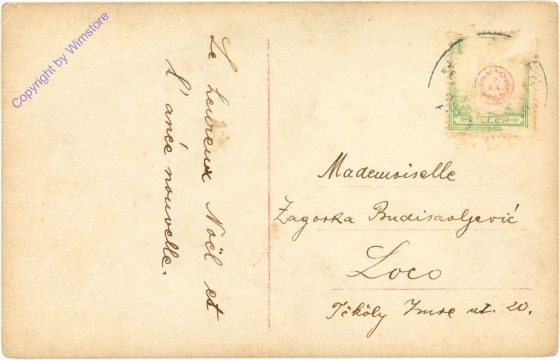 Copyright by Wimstore
Le heureux Noël et
l'anée nouvelle.
HELLER
Mademoiselle
Zagorka Budisavljević
Loco
Tököly Imre ut. 20.